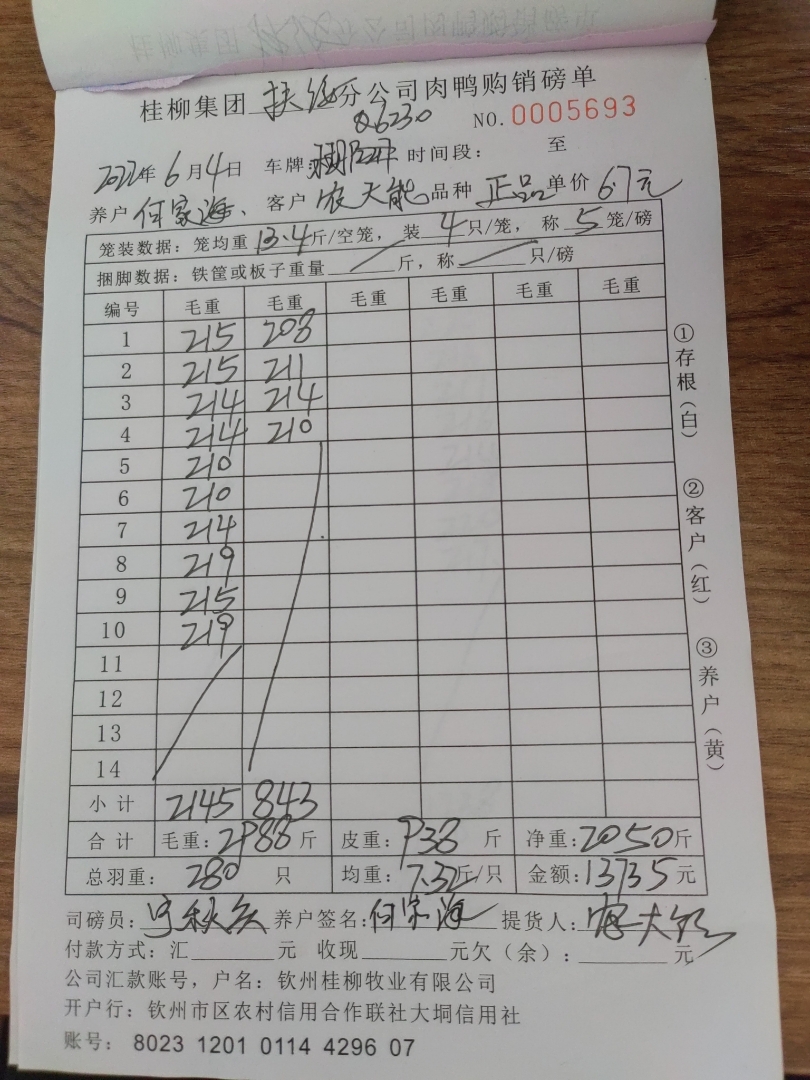 桂柳集团扶绥分公司肉鸭购销磅单
Q6230 NO.0005693
2022年6月4日 车牌: 时间段: 至
养户何家海、客户农大能品种正品单价6.7元
笼装数据:笼均重13.4斤/空笼,装4只/笼,称5笼/磅
捆脚数据:铁筐或板子重量 斤,称 只/磅
编号 毛重 毛重 毛重 毛重 毛重 毛重
1 215 208
2 215 211
3 214 214
4 214 210
5 210
6 210
7 214
8 219
9 215
10 219
11
12
13
14
小计 2145 843
合计 毛重:2988斤 皮重:938斤 净重:2050斤
总羽重:280只 均重:7.32斤/只 金额:13735元
司磅员: 养户签名:何家海 提货人:
付款方式:汇 元 收现 元欠(余): 元
公司汇款账号,户名:钦州桂柳牧业有限公司
开户行:钦州市区农村信用合作联社大垌信用社
账号:8023 1201 0114 4296 07
①存根(白)
②客户(红)
③养户(黄)